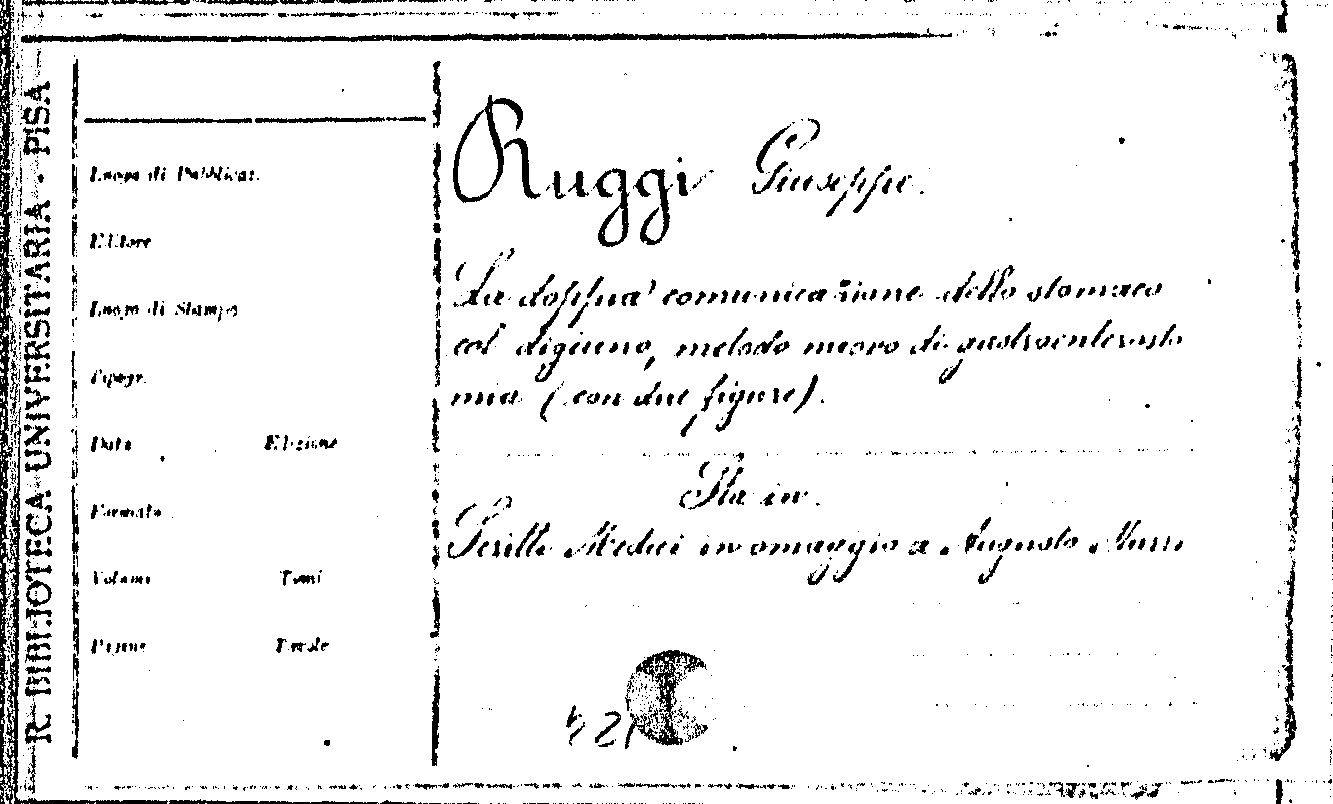 R. BIBLIOTECA UNIVERSITARIA - PISA
Luogo di Pubblicaz.
Editore
Luogo di Stampa
Tipogr.
Data Edizione
Formato
Volumi Tomi
Pagine Tavole
Ruggi Giuseppe.
La doppia comunicazione dello stomaco
col digiuno, metodo nuovo di gastroenterosto
mia (con due figure).
Sta in.
Scritti Medici in omaggio a Augusto Murri